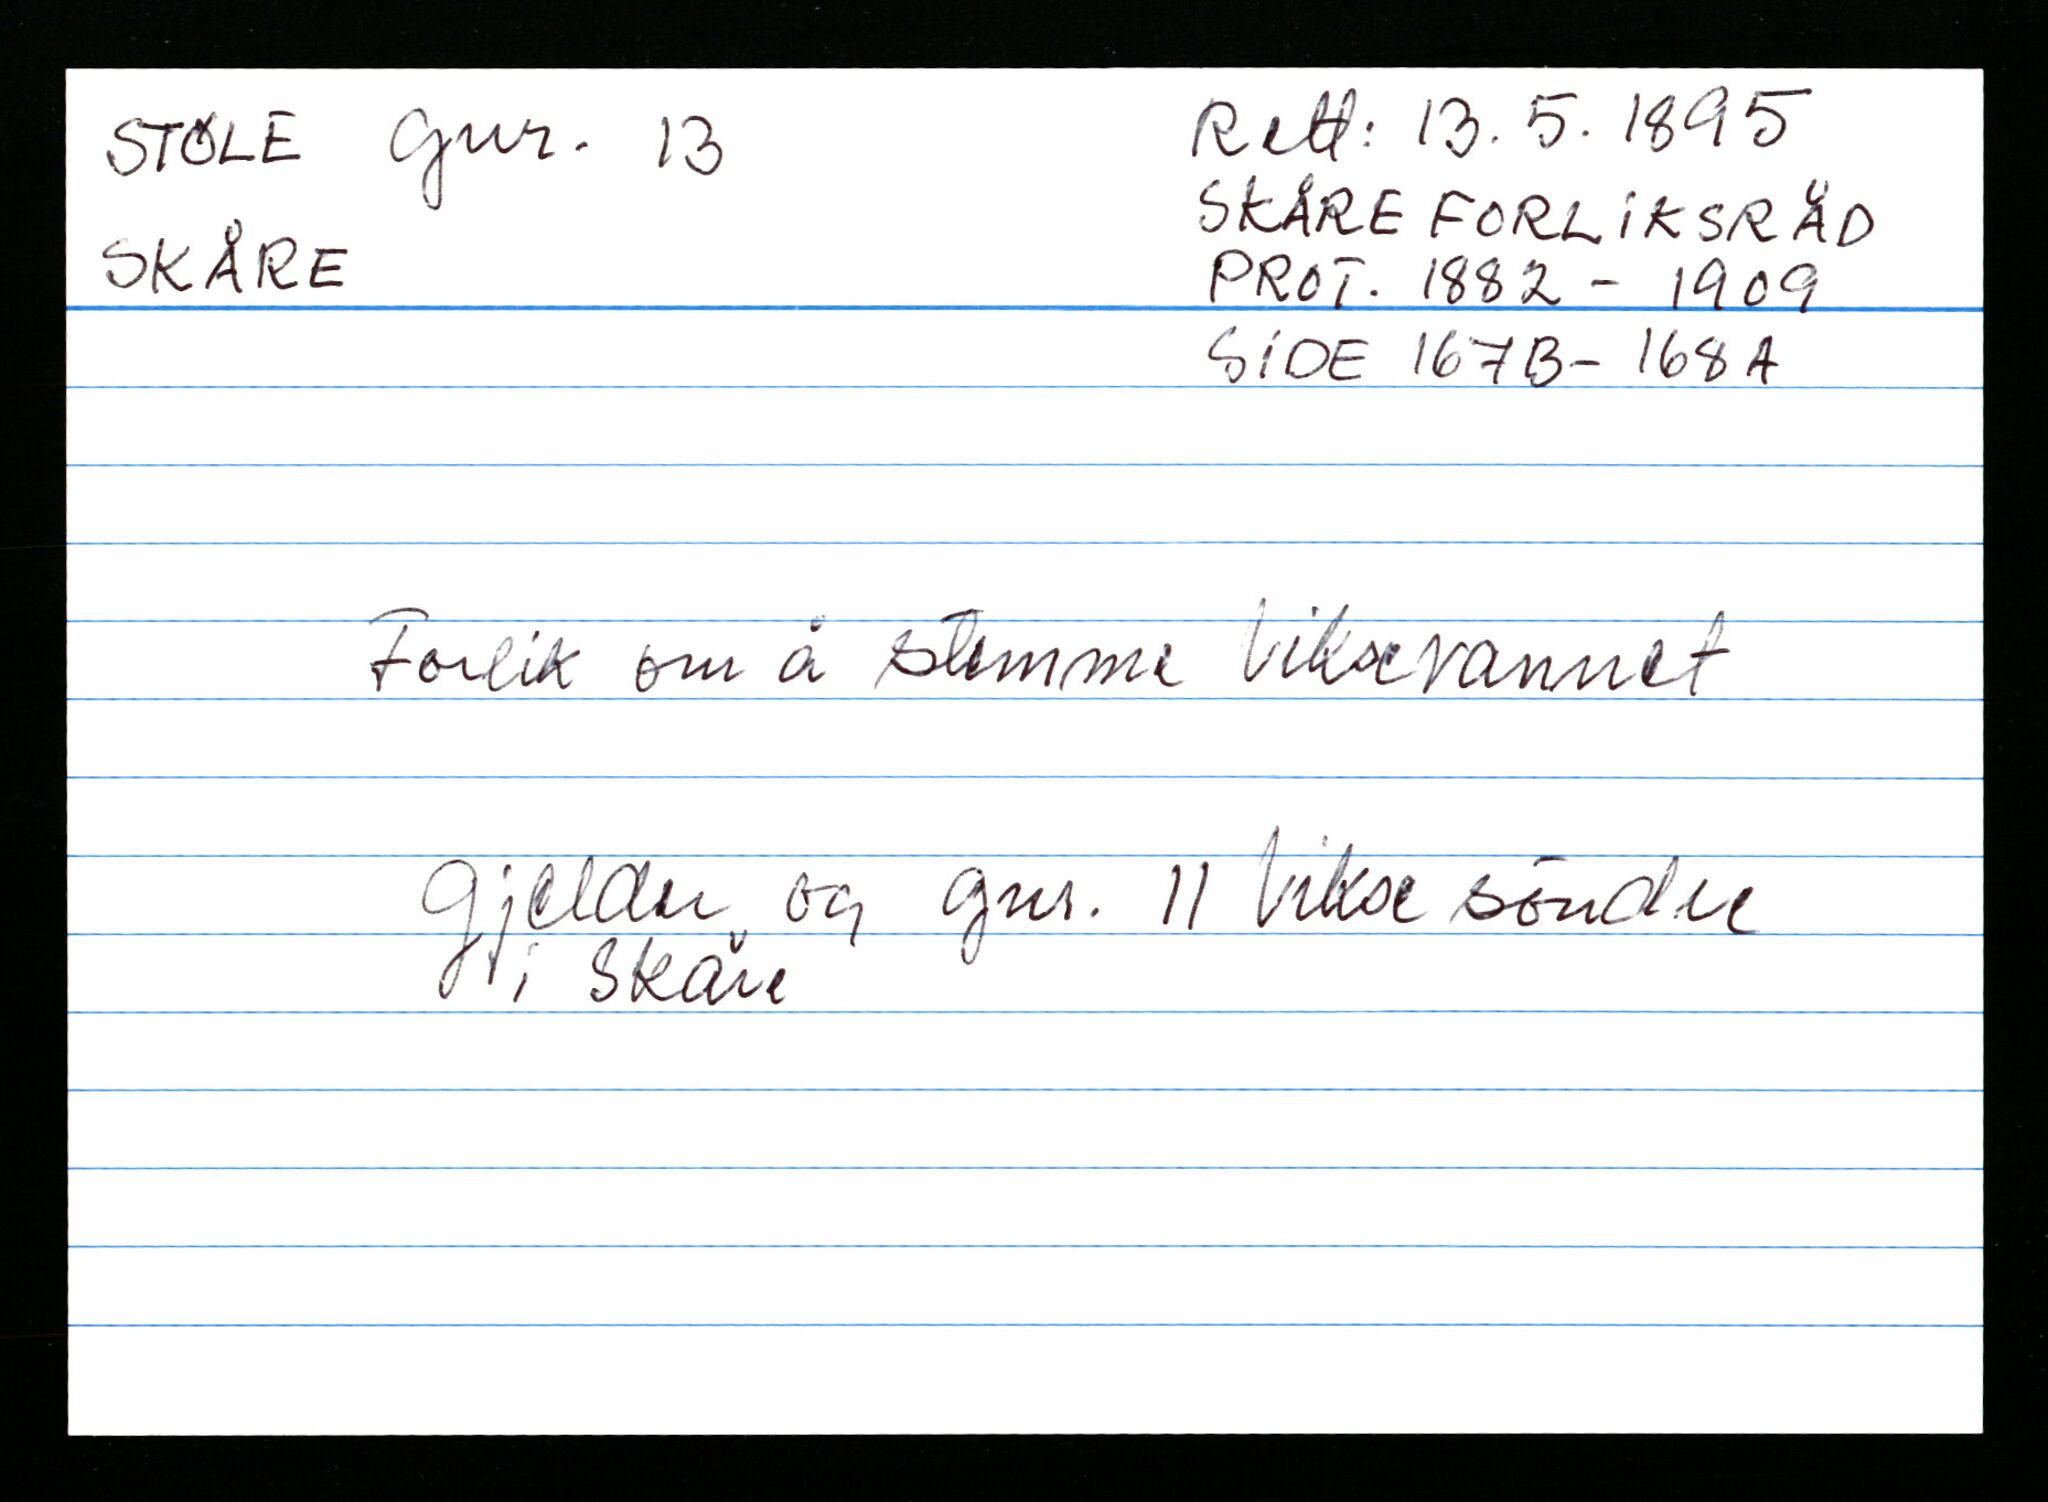 STØLE gnr. 13
SKÅRE
Rett: 13.5.1895
SKÅRE FORLIKSRÅD
PROT. 1882 - 1909
SIDE 167B - 168A
Forlik om å stemme Viksevannet
Gjelder og gnr. 11 Vikse söndre
i Skåre